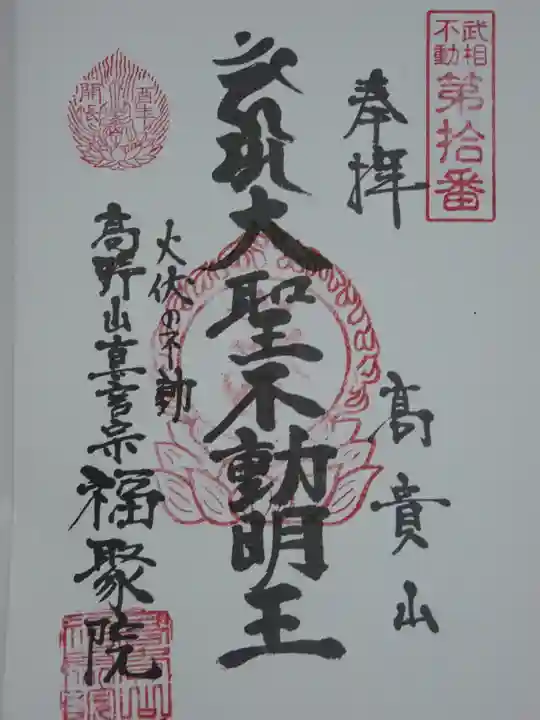 武相
不動
第拾番
奉拝
高貴山
大聖不動明王
火伏の不動
高野山真言宗
福聚院
酉年
開帳